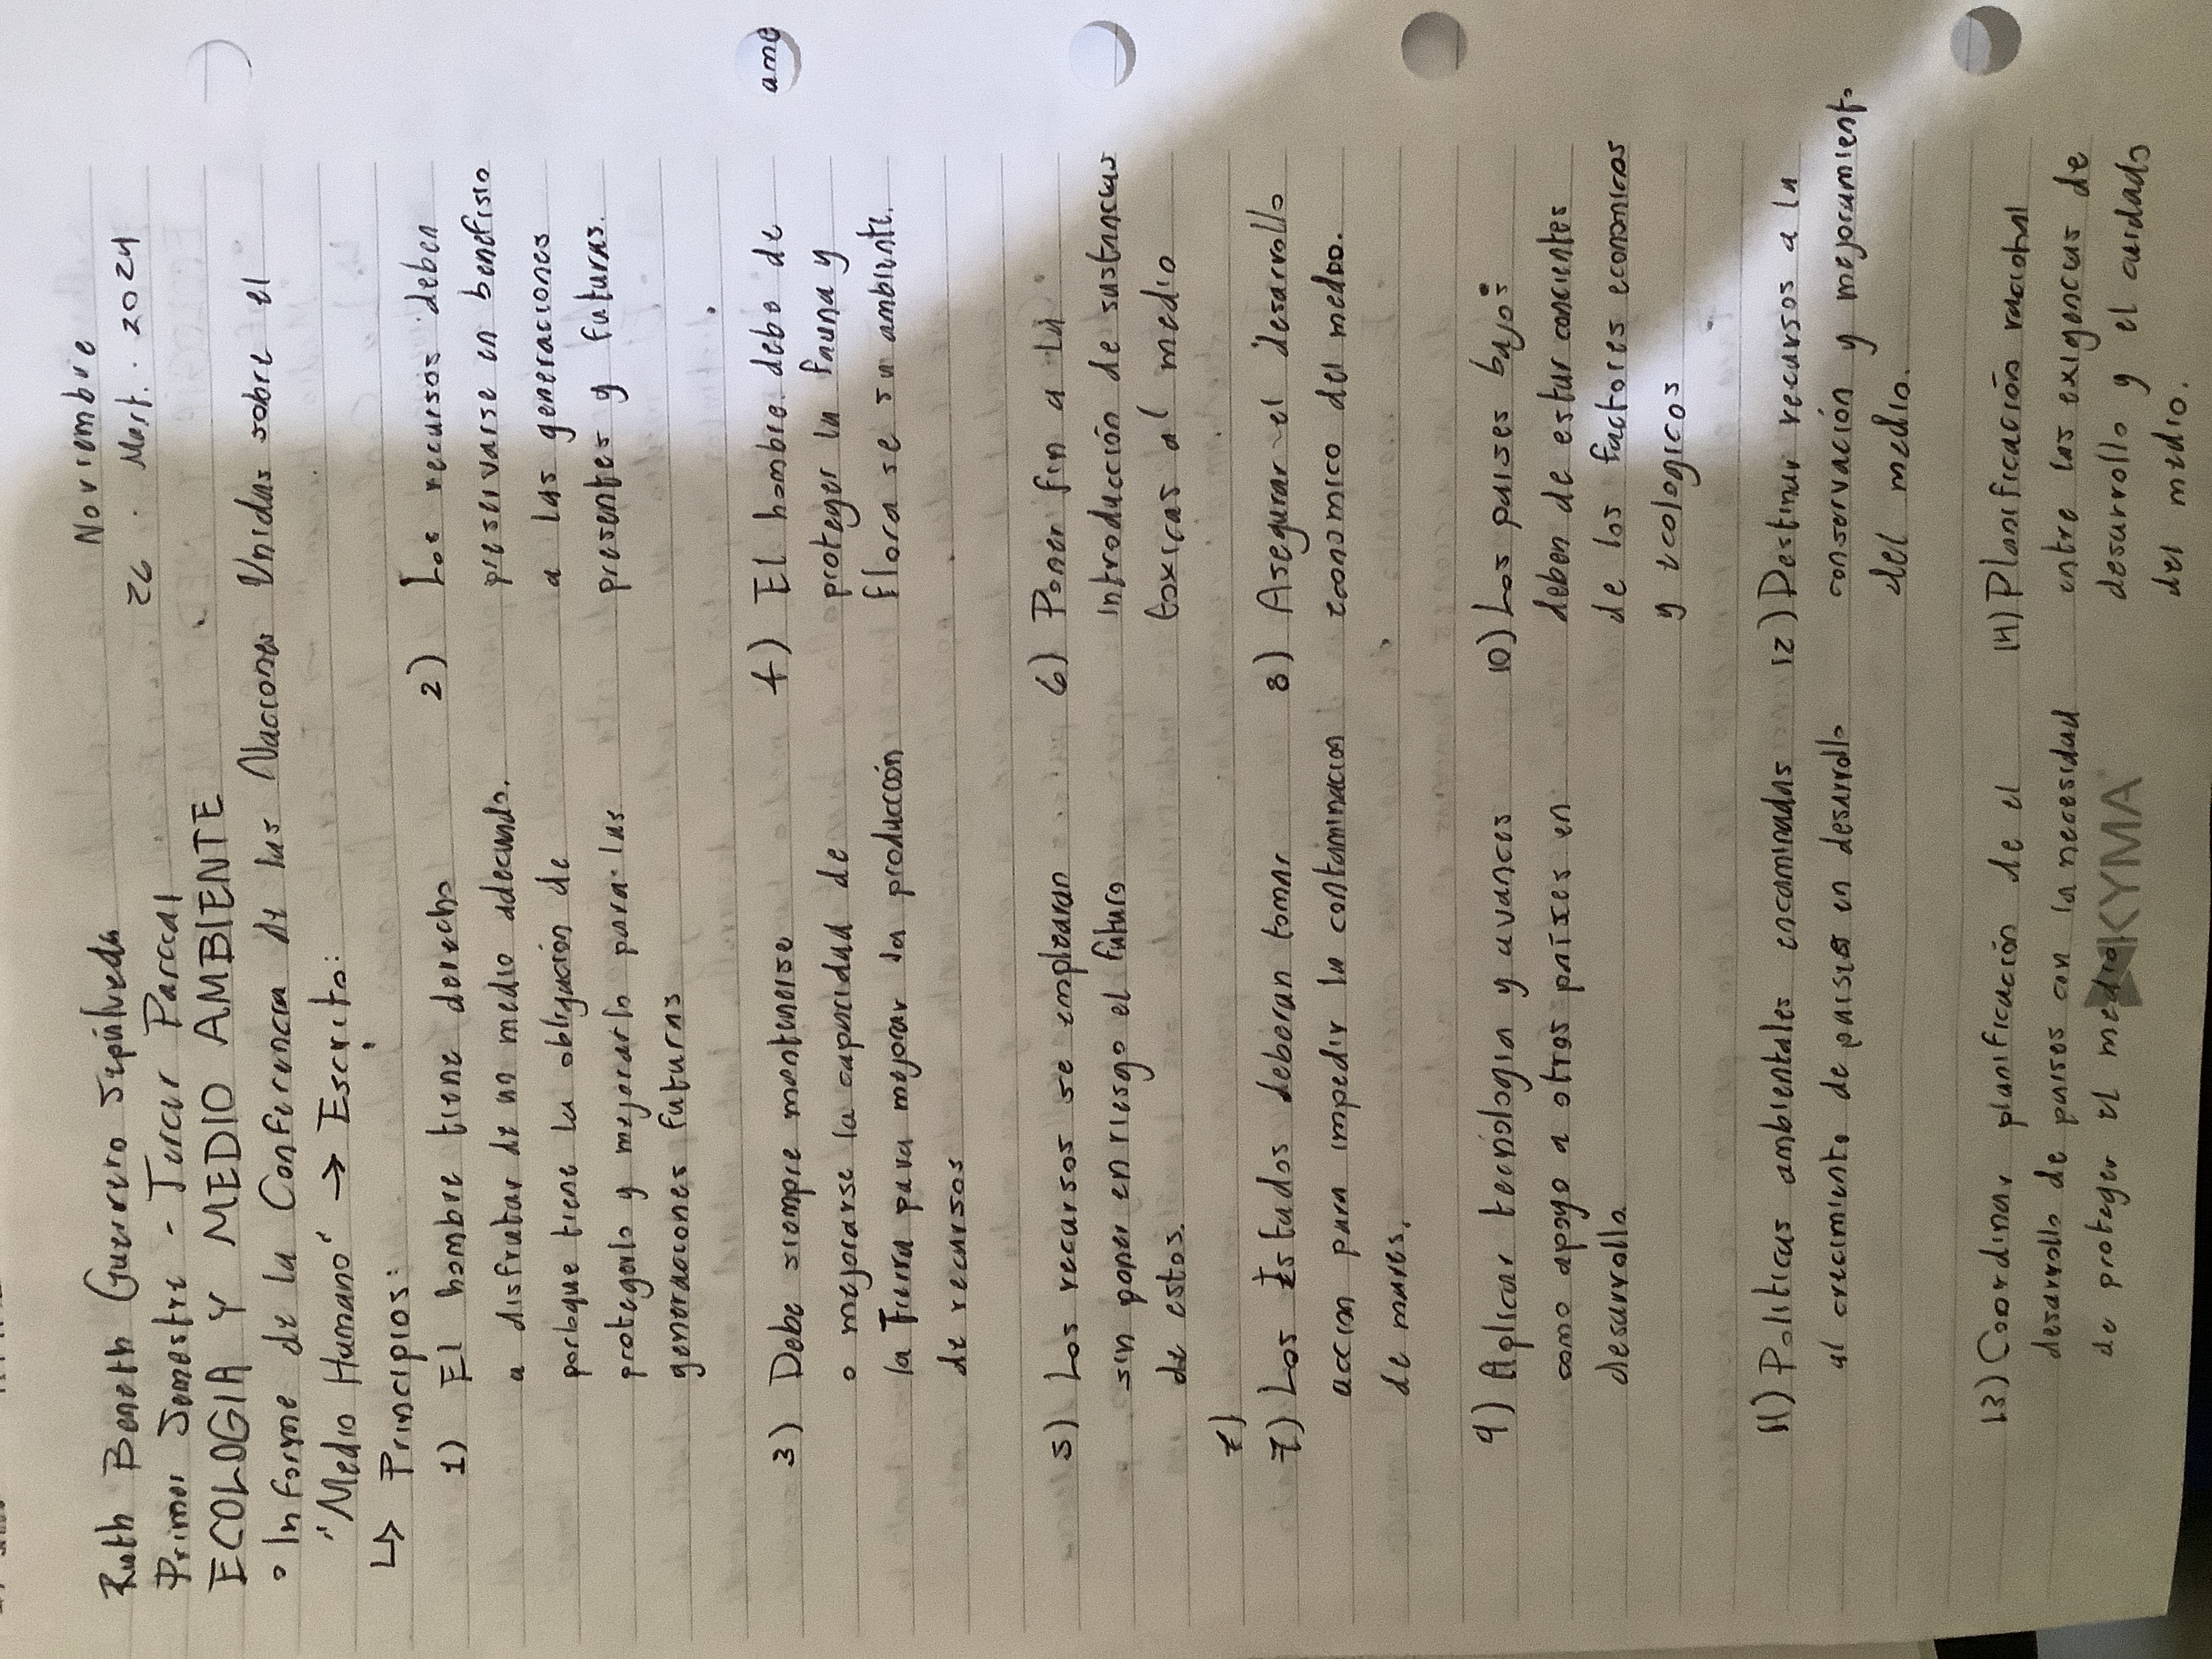 Noviembre
Ruth Beneth Guerrero Sepúlveda
26 . Mart. . 2024
Primer Semestre - Tercer Parcial
ECOLOGIA Y MEDIO AMBIENTE
° Informe de la Conferencia de las Naciones Unidas sobre el
"Medio Humano" → Escrito:
↳ Principios:
1) El hombre tiene derecho
a disfrutar de un medio adecuado.
porbque tiene la obligación de
protegerlo y mejorarlo para las
generaciones futuras
2) Los recursos deben
preservarse en benefisio
a las generaciones
presentes y futuras.
3) Debe siempre mantenerse
o mejorarse la capacidad de
la Tierra para mejorar la producción
de recursos
4) El hombre debe de
proteger la fauna y
flora se su ambiente.
ame
5) Los recursos se emplearan
sin poner en riesgo el futuro
de estos.
6) Poner fin a la
introducción de sustancias
toxicas al medio
7)
7) Los Estados deberan tomar
accion para impedir la contaminacion
de mares.
8) Asegurar el desarrollo
economico del medio.
9) Aplicar tecnologia y avances
como apoyo a otros países en
desarrollo
10) Los paises bajos
deben de estar concientes
de los factores economicos
y ecologicos
11) Politicas ambientales encaminadas
al crecimiento de paises en desarollo
12) Destinar recursos a la
conservación y mejoramiento
del medio.
13) Coordinar planificación de el
desarrollo de paises con la necesidad
de proteger el medio
14) Planificación racional
entre las exigencias de
desarrollo y el cuidado
del medio.
KYMA